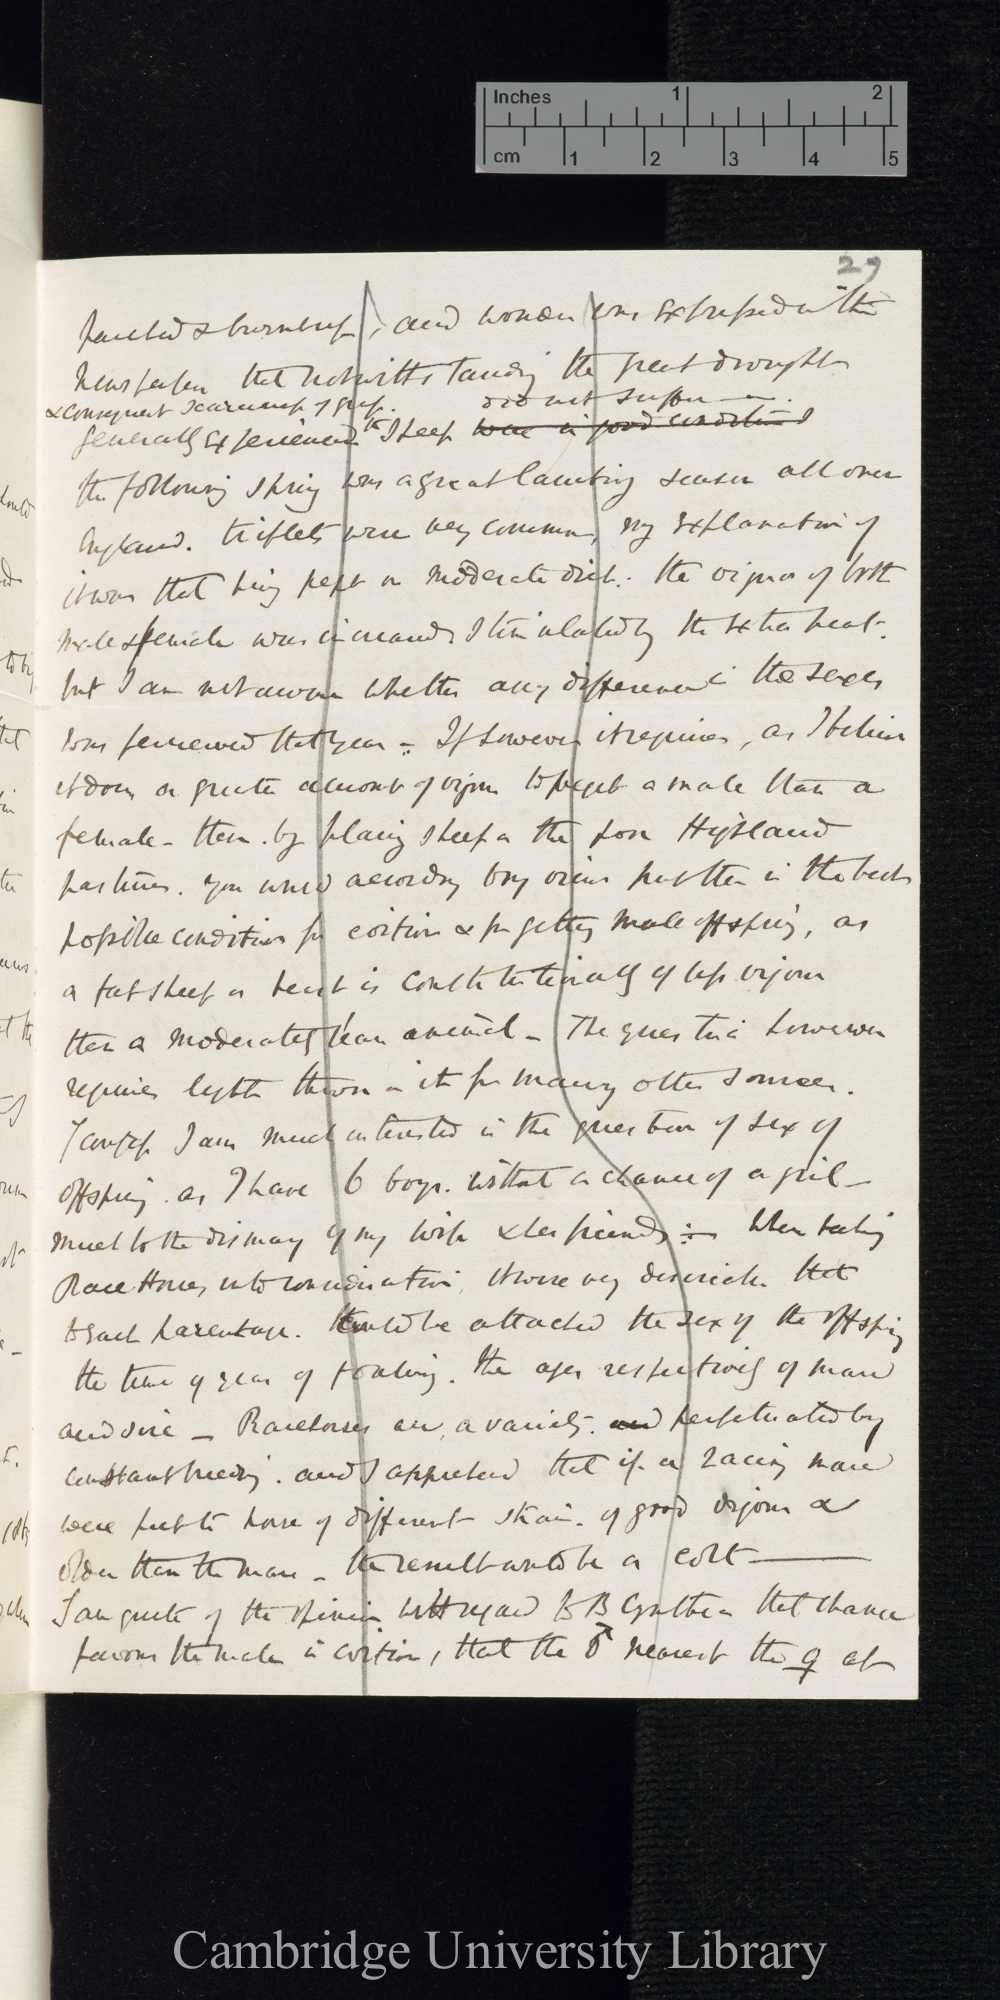 Inches 1 2
cm 1 2 3 4 5
29
parched & burnt up, and wonder was expressed in the
newspapers that notwithstanding the great drought
& consequent scarceness of grass. did not suffer —
generally experienced the sheep were in good condition
the following spring was a great lambing season all over
England. triplets were very common, my explanation of
it was that being kept on moderate diet. the vigour of both
male & female was increased & stimulated by the extra heat.
but I am not aware whether any difference in the sexes
was perceived that year — If however it requires, as I believe
it does a greater amount of vigour to beget a male than a
female — then. by placing sheep on the poor Highland
pastures. you would according to my views put them in the best
possible condition for coition & for getting male offspring, as
a fat sheep or beast is constitutionally of less vigour
than a moderately lean animal — The question however
requires light thrown on it from many other sources.
I confess I am much interested in the question of sex of
offspring. as I have 6 boys. without a chance of a girl —
much to the dismay of my wife & her friends :— When taking
Race Horses into consideration, it were very desirable that
to each parentage. there should be attached the sex of the offspring
the time of year of foaling. the ages respectively of mare
and sire — Racehorses are, a variety. and perpetuated by
constant breeding. and I apprehend that if a racing mare
were put to horse of different strain. of good vigour &
older than the mare — the result would be a colt —
I am quite of the opinion with regard to B Cynthia that chance
favours the male in coition, that the ♂ nearest the ♀ at
Cambridge University Library